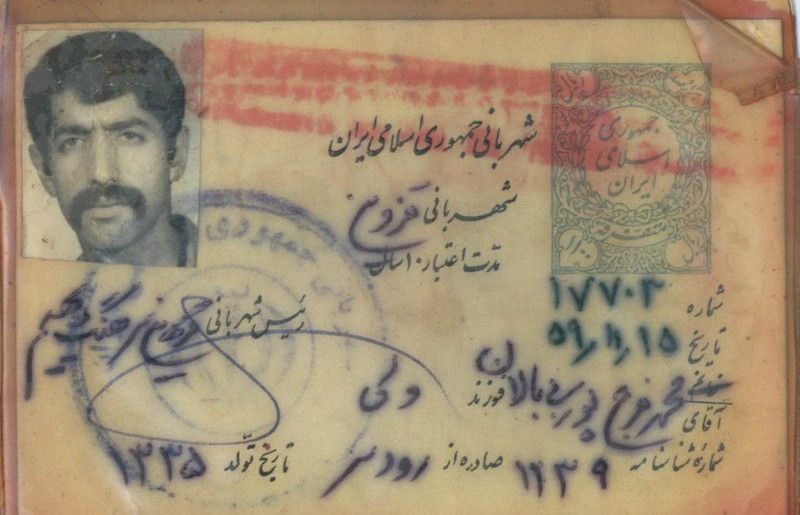 شهربانی جمهوری اسلامی ایران
جمهوری
اسلامی
ایران
شهربانی قزوین
مدت اعتبار ۱۰ سال
متفرقه
شماره ۱۷۷۰۳
تاریخ ۵۹٫۱۱٫۱۵
رئیس شهربانی قزوین سرهنگ
آقای محمد فرج پوربی بالان فرزند ولی
شماره شناسنامه ۱۱۳۹ صادره از رودسر تاریخ تولد ۱۳۳۵